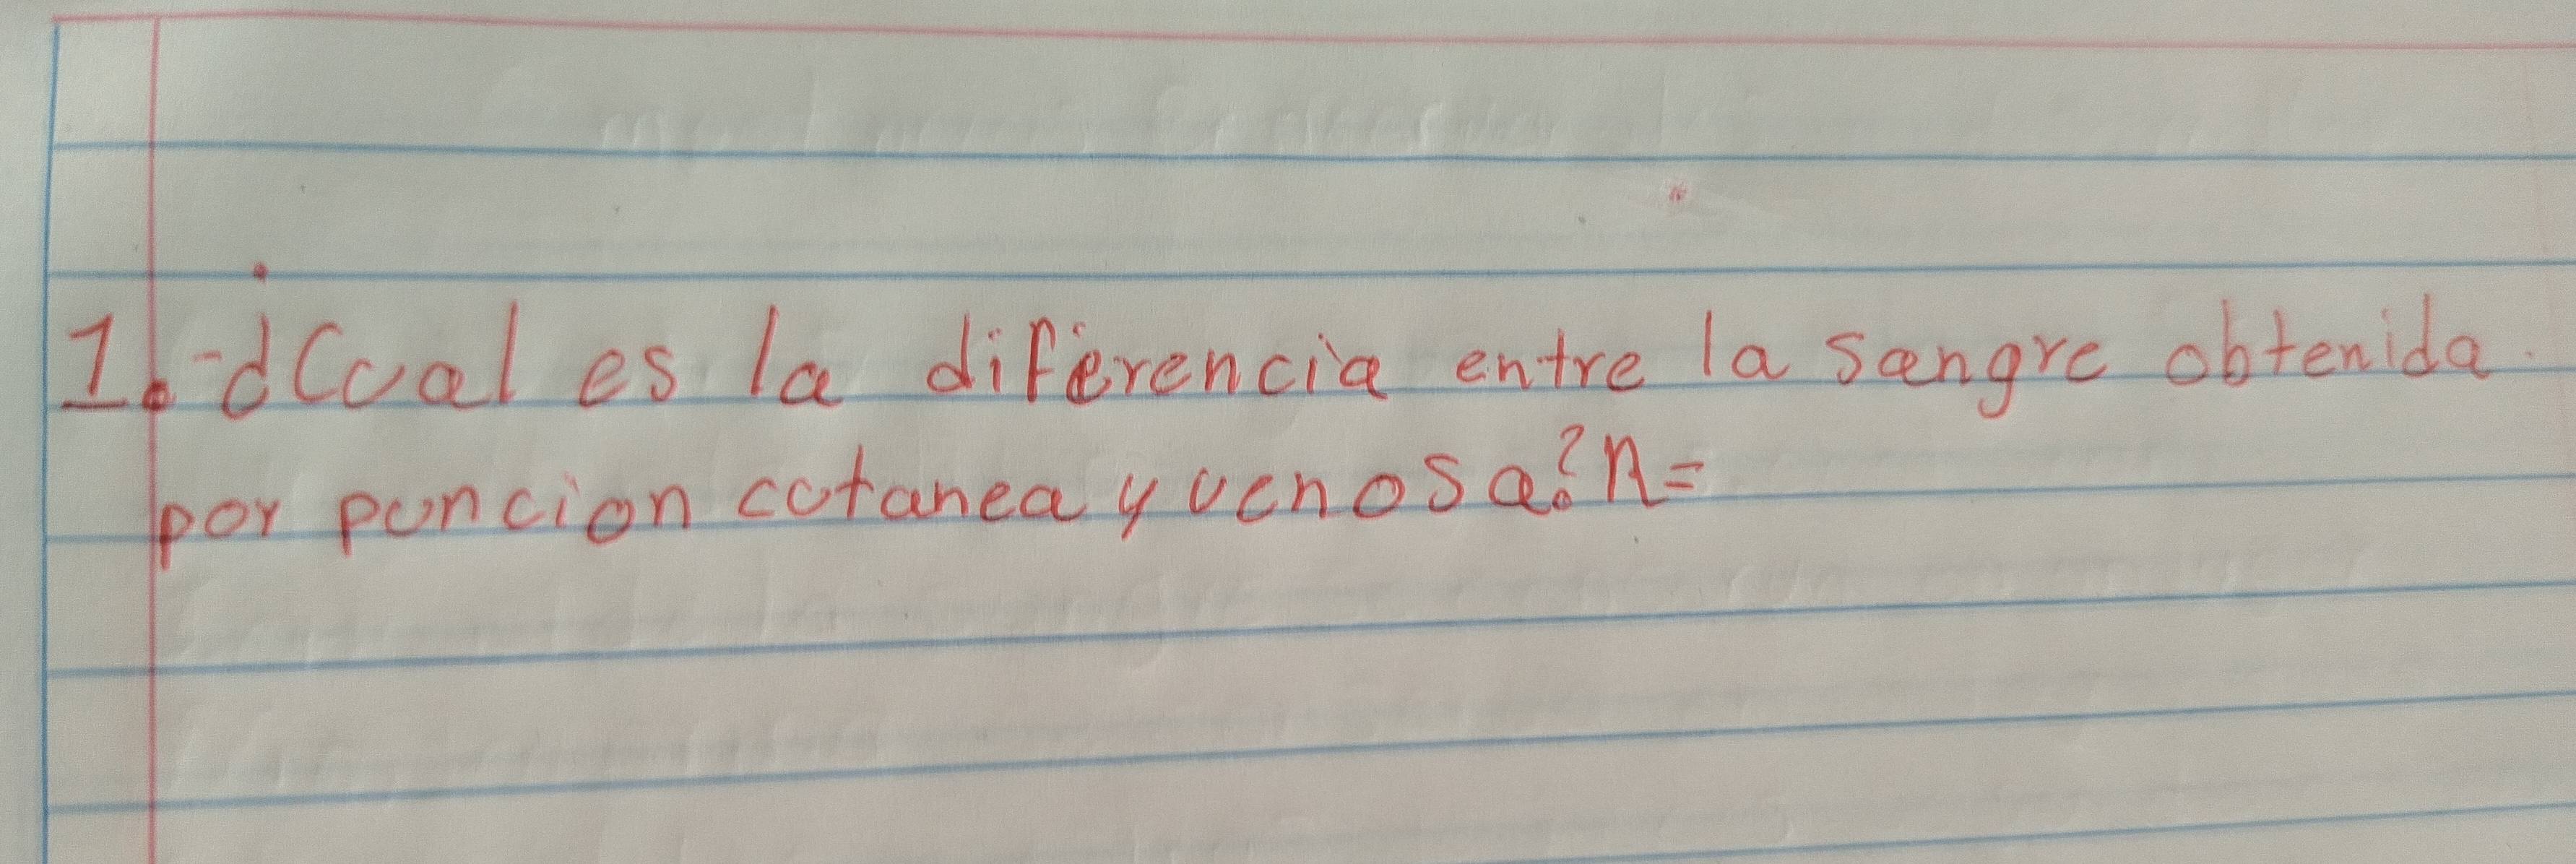 1.-¿Cual es la diferencia entre la sangre obtenida
por puncion cutanea y venosa? R=